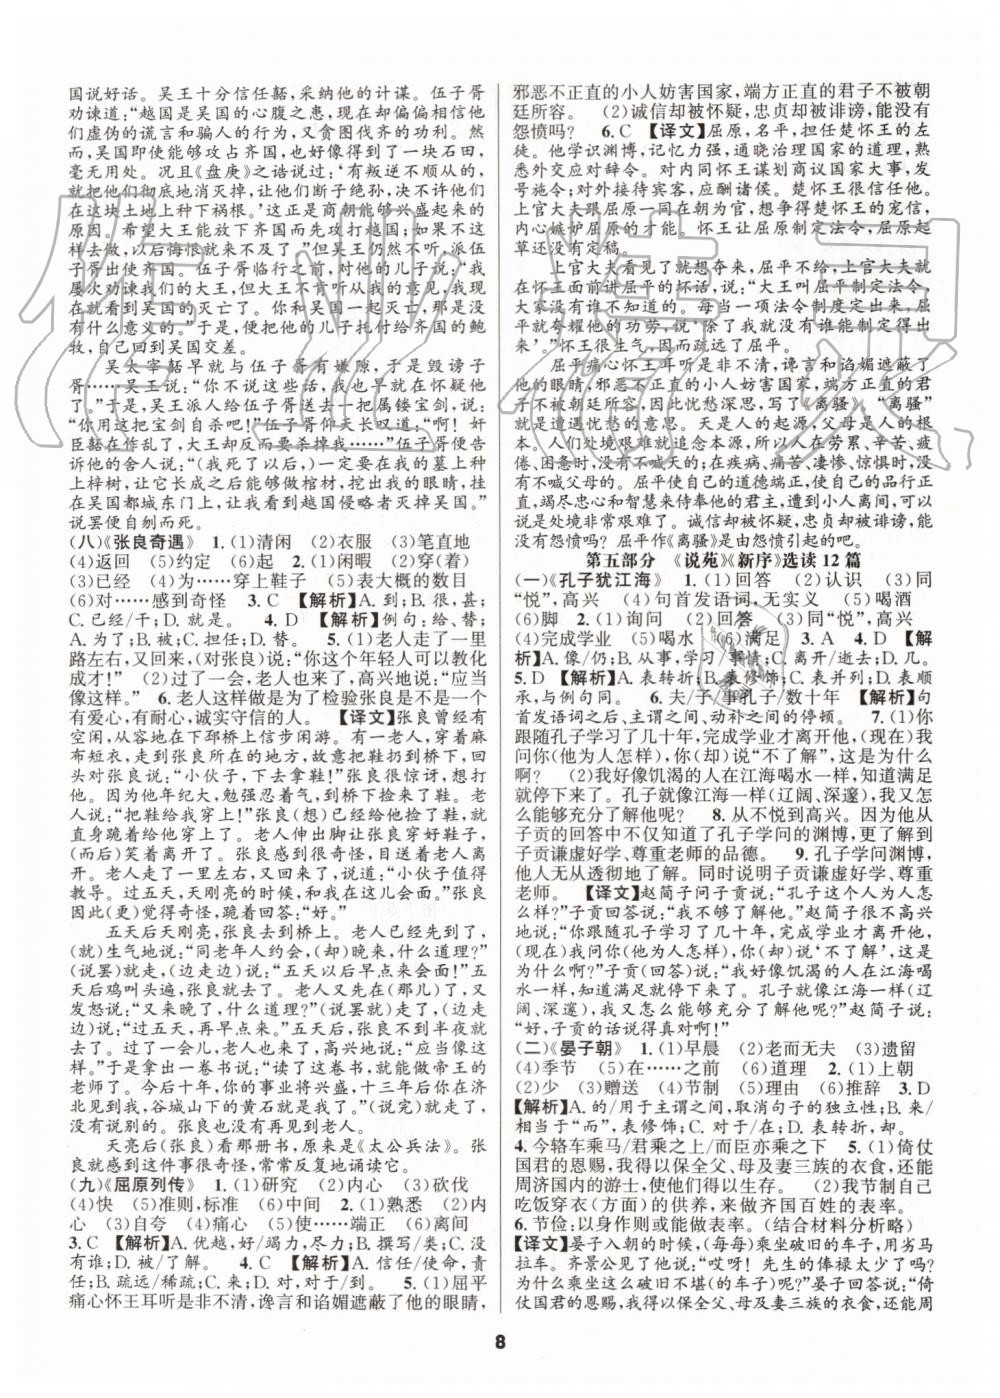 国说好话。吴王十分信任嚭，采纳他的计谋。伍子胥
劝谏道：“越国是吴国的心腹之患，现在却偏偏相信他
们虚伪的谎言和骗人的行为，又贪图伐齐的功利。然
而，吴国即使能够攻占齐国，也好像得到了一块石田，
毫无用处。况且《盘庚》之诰说过：‘有叛逆不顺从的，
就把他们彻底地消灭掉，让他们断子绝孙，决不许他们
在这块土地上种下祸根。’这正是商朝能够兴盛起来的
原因。希望大王能放下齐国而先攻打越国；如果不这
样去做，以后悔恨就来不及了。”但吴王仍然不听，派伍
子胥出使齐国。伍子胥临行之前，对他的儿子说：“我
屡次劝谏我们的大王，但大王不肯听从我的意见，我现
在就要看到吴国的灭亡了。你和吴国一起灭亡，那是没
有什么意义的。”于是，便把他的儿子托付给齐国的鲍
牧，自己回到吴国交差。
吴太宰嚭早就与伍子胥有嫌隙，于是毁谤子
胥……吴王说：“你不说这些话，我也早就在怀疑他
了。”于是，吴王派人给伍子胥送去一把属镂宝剑，说：
“你用这把宝剑自杀吧！”伍子胥仰天长叹道：“啊！奸
臣嚭在作乱了，大王却反而要杀掉我……”伍子胥便告
诉他的舍人说：“(我死了以后，)一定要在我的墓上种
上梓树，让它长成之后能够做棺材，挖出我的眼睛，挂
在吴国都城东门上，让我看着越国侵略者灭掉吴国。”
说罢便自刎而死。
(八)《张良奇遇》 1. (1)清闲 (2)衣服 (3)笔直地
(4)返回 (5)约定 (6)起 2. (1)闲暇 (2)穿(着)
(3)已经 (4)为……穿上鞋子 (5)表大概的数目
(6)对……感到奇怪 3. C 【解析】A. 到；B. 很，甚；
C. 已经/干；D. 就是。 4. D 【解析】例句：给、替；
A. 为了；B. 被；C. 担任；D. 替。 5. (1)老人走了一里
路左右，又回来，(对张良)说：“你这个年轻人可以教化
成才！” (2)过了一会，老人也来了，高兴地说：“应当
像这样。” 6. 老人这样做是为了检验张良是不是一个
有爱心，有耐心，诚实守信的人。 【译文】张良曾经有
空闲，从容地在下邳桥上信步闲游。有一老人，穿着麻
布短衣，走到张良所在的地方，故意把鞋扔到桥下，回
头对张良说：“小伙子，下去拿上鞋！”张良很惊讶，想打
他。因为他年纪大，勉强忍着气，到桥下捡来了鞋。老
人说：“把鞋给我穿上！”张良(想)已经捡了鞋，就
直身跪着给他穿上了。老人伸出脚让张良穿好鞋子，
(而后)笑着离开了。张良感到很奇怪，目送着老人离
开。老人走了一里左右，又回来了，说：“小伙子值得
教导。过五天，天刚亮的时候，和我在这里会面。”张良
因此(更)觉得奇怪，跪着回答：“好。”
五天后天刚亮，张良去到桥上。老人已经先到了，
(就)生气地说：“同老年人约会，(却)晚来，什么道理？”
(说罢)就走，(边走边)说：“五天以后早点来会面！”五
天后鸡叫头遍，张良就去了。老人又先在(那儿)了，又
发怒说：“又来晚了，什么道理？”(说罢)就走了，(边走
边)说：“过五天，再早点来。”五天后，张良不到半夜就
去了。过了一会儿，老人也来了，高兴地说：“应当像这
样。”于是拿出一卷书说：“读了这卷书，就能做帝王的
老师了。今后十年，你的事业将兴盛，十三年后你在济
北见到我，谷城山下的黄石就是我了。”(说完)就走了，
没有说别的。张良也没有再见到老人。
天亮后(张良)看那册书，原来是《太公兵法》。张
良就感到这件事情很奇怪，常常反复地诵读它。
(九)《屈原列传》 1. (1)研究 (2)内心 (3)砍伐
(4)快 (5)准则，标准 (6)中间 2. (1)熟悉 (2)内
心 (3)自夸 (4)痛心 (5)使……端正 (6)离间
3. C 【解析】A. 优越，好/竭力，尽力；B. 撰写/类；C. 没
有，谁；D. 被/二。 4. C 【解析】A. 信任/使命，责任；
B. 疏远/稀疏；C. 都；D. 对，对于/到。 5. (1)屈平
痛心怀王耳听是非不清，谗言和谄媚遮蔽了他的眼睛，
邪恶不正直的小人妨害国家，端方正直的君子不被朝
廷所容。 (2)诚信却被怀疑，忠贞却被诽谤，能没有
怨愤吗？ 6. C 【译文】屈原，名平，担任楚怀王的左
徒。他学识渊博，记忆力强，通晓治理国家的道理，熟
悉外交应对辞令。对内同怀王谋划商议国家大事，发
号施令；对外接待宾客，应酬诸侯。楚怀王很信任他。
上官大夫跟屈原一同在朝为官，想得到楚怀王的宠信，
内心嫉妒屈原的才能。怀王让屈原制定法令，屈原起
草还没有定稿。
上官大夫看见了就想夺来，屈平不给，上官大夫就
在怀王面前进屈原的谗言，说：“大王叫屈平制定法令，
大家没有谁不知道的。每当一项法令制度定出来，屈
平就夸耀他的功劳，说‘除了我就没有谁能制定得出
来’。”怀王很生气，因而疏远了屈平。
屈平痛心怀王耳听是非不清，谗言和谄媚遮蔽了
他的眼睛，邪恶不正直的小人妨害国家，端方正直的君
子不被朝廷所容，因此忧愁深思，写了《离骚》。“离骚”
就是遭遇忧愁的意思。天是人的起源，父母是人的根
本。人们处境艰难就会追念本源，所以人在劳苦、疲
倦、困乏时，没有不喊天的；在疾病、痛苦、凄惨、惊惧时，没
有不喊父母的。屈平使自己的道德端正，使自己的品行正
直，竭尽忠心和智慧来侍奉他的君主，遭到小人离间，可以
说是处境非常艰难了。诚信却被怀疑，忠贞却被诽谤，能
没有怨愤吗？屈平作《离骚》是由怨愤引起的。
第五部分 《说苑》《新序》选读 12 篇
(一)《孔子犹江海》 1. (1)回答 (2)认识 (3)同
“悦”，高兴 (4)句首发语词，无实义 (5)喝酒
(6)脚 2. (1)询问 (2)回答 (3)同“悦”，高兴
(4)完成学业 (5)喝水 (6)满足 3. A 4. D 【解
析】A. 像/仍；B. 从事，学习/事情；C. 离开/逝去；D. 几。
5. D 【解析】A. 表转折；B. 表修饰；C. 表并列；D. 表顺
承，与例句同。 6. 夫/子/事孔子/数十年 【解析】句
首发语词之后、主谓之间、动补之间的停顿。 7. (1)你
跟随孔子学习了几十年，完成学业才离开他，(现在)我
问你(他为人怎样)，你(却)说“不了解”，这是为什么
啊？ (2)我好像饥渴的人在江海喝水一样，知道满足
就停下来了。孔子就像江海一样(辽阔、深邃)，我又怎
么能够充分了解他呢？ 8. 从不悦到高兴。因为他
从子贡的回答中不仅知道了孔子学问的渊博，更了解到
子贡谦虚好学、尊重老师的品德。 9. 孔子学问渊博，
他人无从透彻地了解。同时说明子贡谦虚好学、尊重
老师。 【译文】赵简子问子贡说：“孔子这个人为人怎
么样？”子贡回答说：“我不能够了解他。”赵简子很不高兴
地说：“你跟随孔子学习了几十年，完成学业才离开他，
(现在)我问你(他为人怎样)，你(却)说‘不了解’，这是
为什么啊？”子贡回答说：“我好像饥渴的人在江海喝水
一样，知道满足就停下来了。孔子就像江海一样(辽
阔、深邃)，我又怎么能够充分了解他呢？”赵简子说：
“好，子贡的话说得真对啊！”
(二)《晏子朝》 1. (1)早晨 (2)老而无夫 (3)遗留
(4)季节 (5)在……之前 (6)道理 2. (1)上朝
(2)少 (3)赠送 (4)节制 (5)理由 (6)推辞 3. D
【解析】A. 的/用于主谓之间，取消句子的独立性；B. 来/
相当于“而”，表修饰；C. 对于/在；D. 表转折，却。
4. 今辂车乘马/君乘之上/而臣亦乘之下 5. (1)倚仗
国君的恩赐，我得以保全父、母及妻三族的衣食，还能
周济国内的游士，使他们得以生存。 (2)我节制自己
吃饭穿衣(方面)的供养，来做齐国百姓的表率。
6. 节俭：以身作则或能做表率。(结合材料分析略)
【译文】晏子入朝的时候，(每每)乘坐破旧的车子，用劣马
拉车。齐景公见了说：“哎呀！先生的俸禄太少了吗？
为什么乘坐这么破旧不堪的(的车子)？”晏子回答说：“倚
仗国君的恩赐，我得以保全父、母及妻三族的衣食，还能周
8